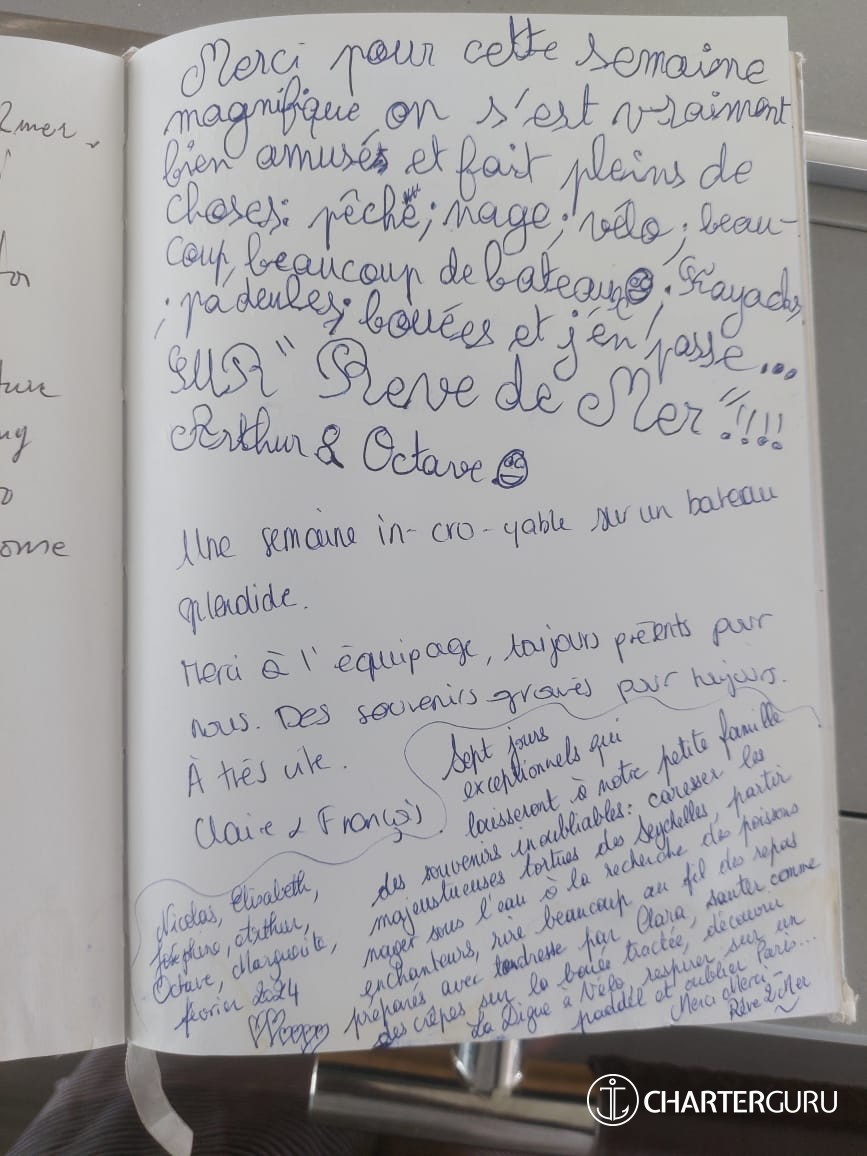 2mer.
for
ture
ng
o
ome
Merci pour cette semaine
magnifique, on s'est vraiment
bien amusés et fait pleins de
choses: pêche; nage; vélo; beau-
coup, beaucoup de bateaux; Kayacks,
; padeules; bouées et j'en passe...
SUR " Reve de Mer "!!!!
Arthur & Octave
Une semaine in-cro-yable sur un bateau
splendide.
Merci à l'équipage, toujours présents pour
nous. Des souvenirs gravés pour toujours.
À très vite.
Claire & François
Sept jours
exceptionnels qui
laisseront à notre petite famille
des souvenirs inoubliables: caresser les
majestueuses tortues des Seychelles, partir
nager sous l'eau à la recherche des poissons
enchanteurs, rire beaucoup au fil des repas
préparés avec tendresse par Clara, sauter comme
des crêpes sur la bouée tractée, découvrir
La Digue à Vélo, respirer sur un
paddel et oublier Paris...
Merci Merci -
Rêve 2 Mer
Nicolas, Elisabeth,
Joséphine, Arthur,
Octave, Marguerite,
février 2024
CHARTERGURU